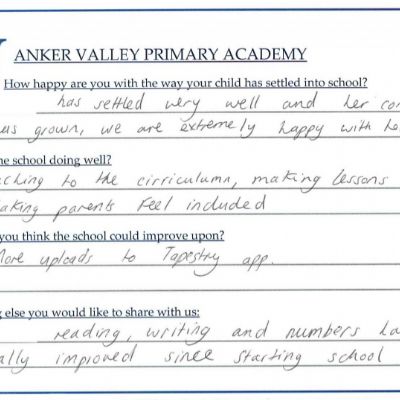 ANKER VALLEY PRIMARY ACADEMY
How happy are you with the way your child has settled into school?
has settled very well and her
grown, we are extremely happy with
he school doing well?
to the cirriculumn, making lessons
aking parents feel included
you think the school could improve upon?
More uploads to Tapestry app.
else you would like to share with us:
reading, writing and numbers
improved since starting school